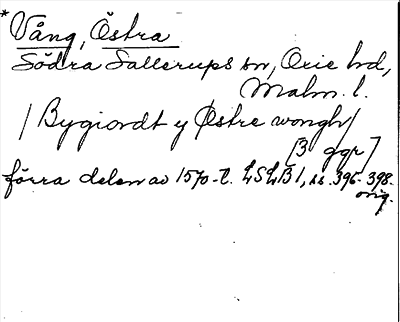 * Vång, Östra
Södra Sallerups sn, Oxie hd,
Malm. l.
/ Bygiordt y Østre wongh /
[3 ggr]
förra delen av 1570-t. LSLB 1, ss. 396-398.
orig.